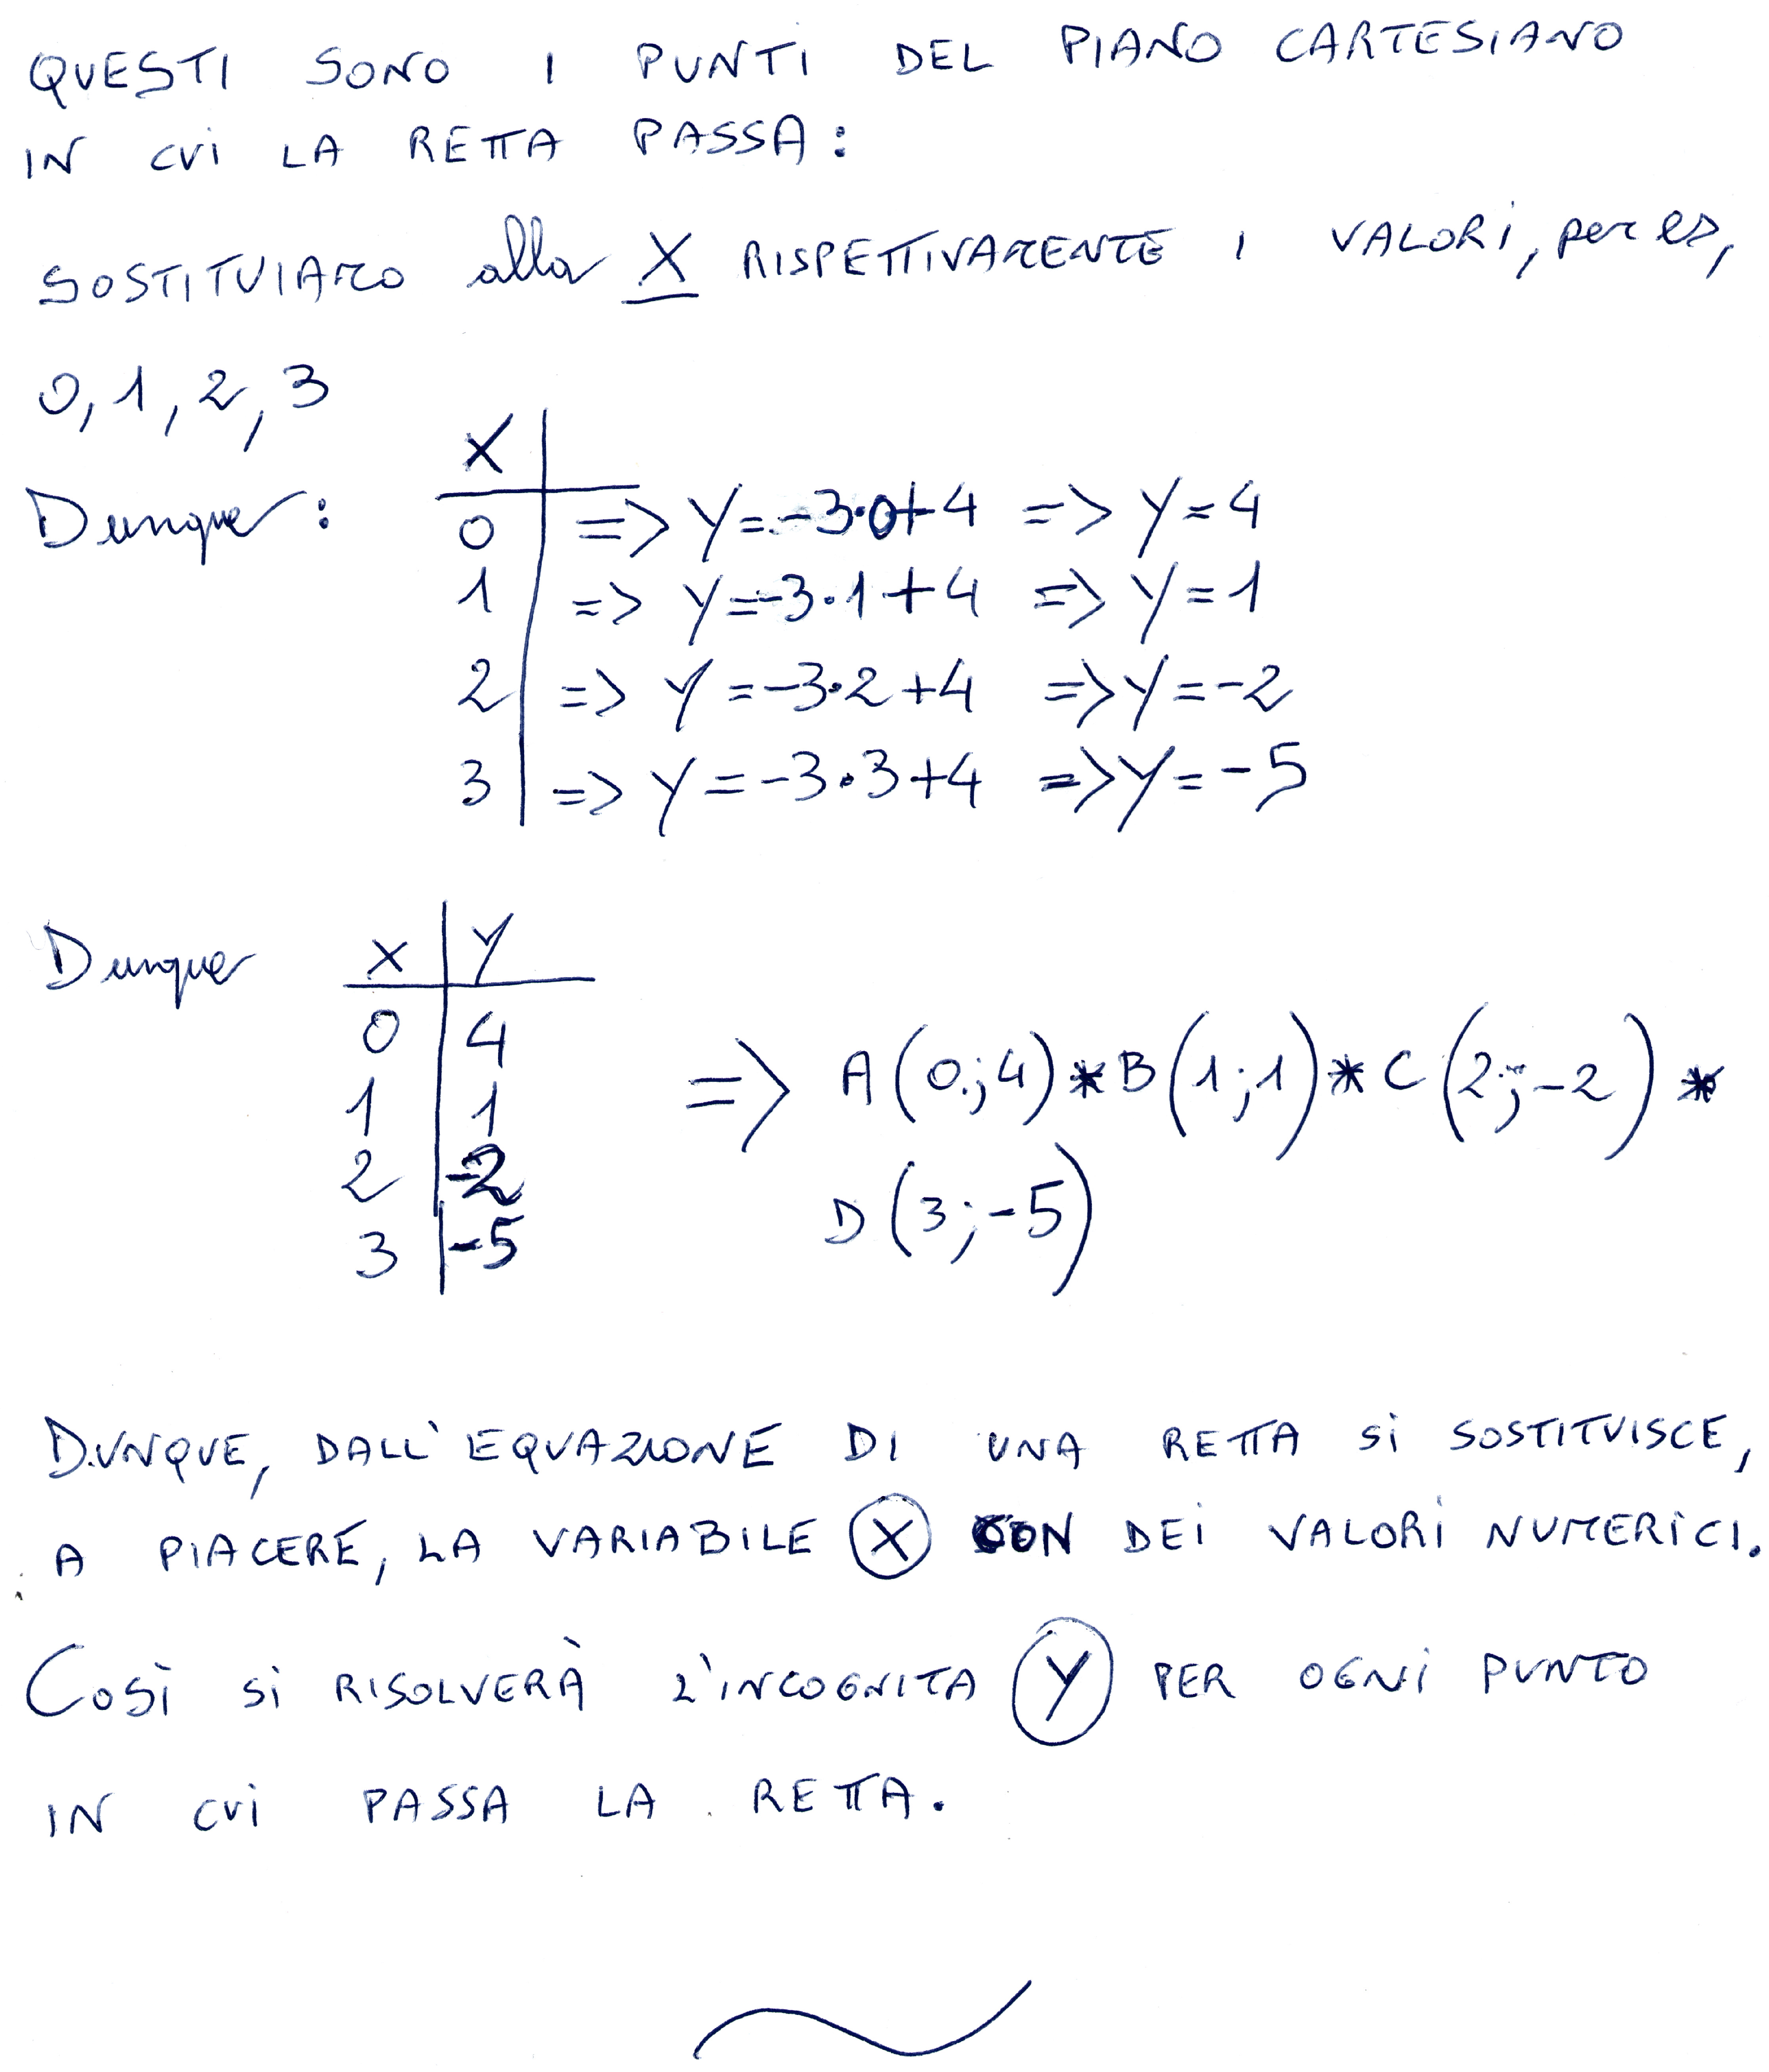 QUESTI SONO I PUNTI DEL PIANO CARTESIANO
IN CUI LA RETTA PASSA:
SOSTITUIAMO alla X RISPETTIVAMENTE I VALORI, per es,
0, 1, 2, 3
X
Dunque: 0 => Y=-3·0+4 => Y=4
1 => Y=-3·1+4 => Y=1
2 => Y=-3·2+4 => Y=-2
3 => Y=-3·3+4 => Y=-5
Dunque X Y
0 4
1 1 => A(0;4)*B(1;1)*C(2;-2)*
2 -2
3 -5 D(3;-5)
DUNQUE, DALL'EQUAZIONE DI UNA RETTA SI SOSTITUISCE,
A PIACERE, LA VARIABILE X CON DEI VALORI NUMERICI.
COSÌ SI RISOLVERÀ L'INCOGNITA Y PER OGNI PUNTO
IN CUI PASSA LA RETTA.